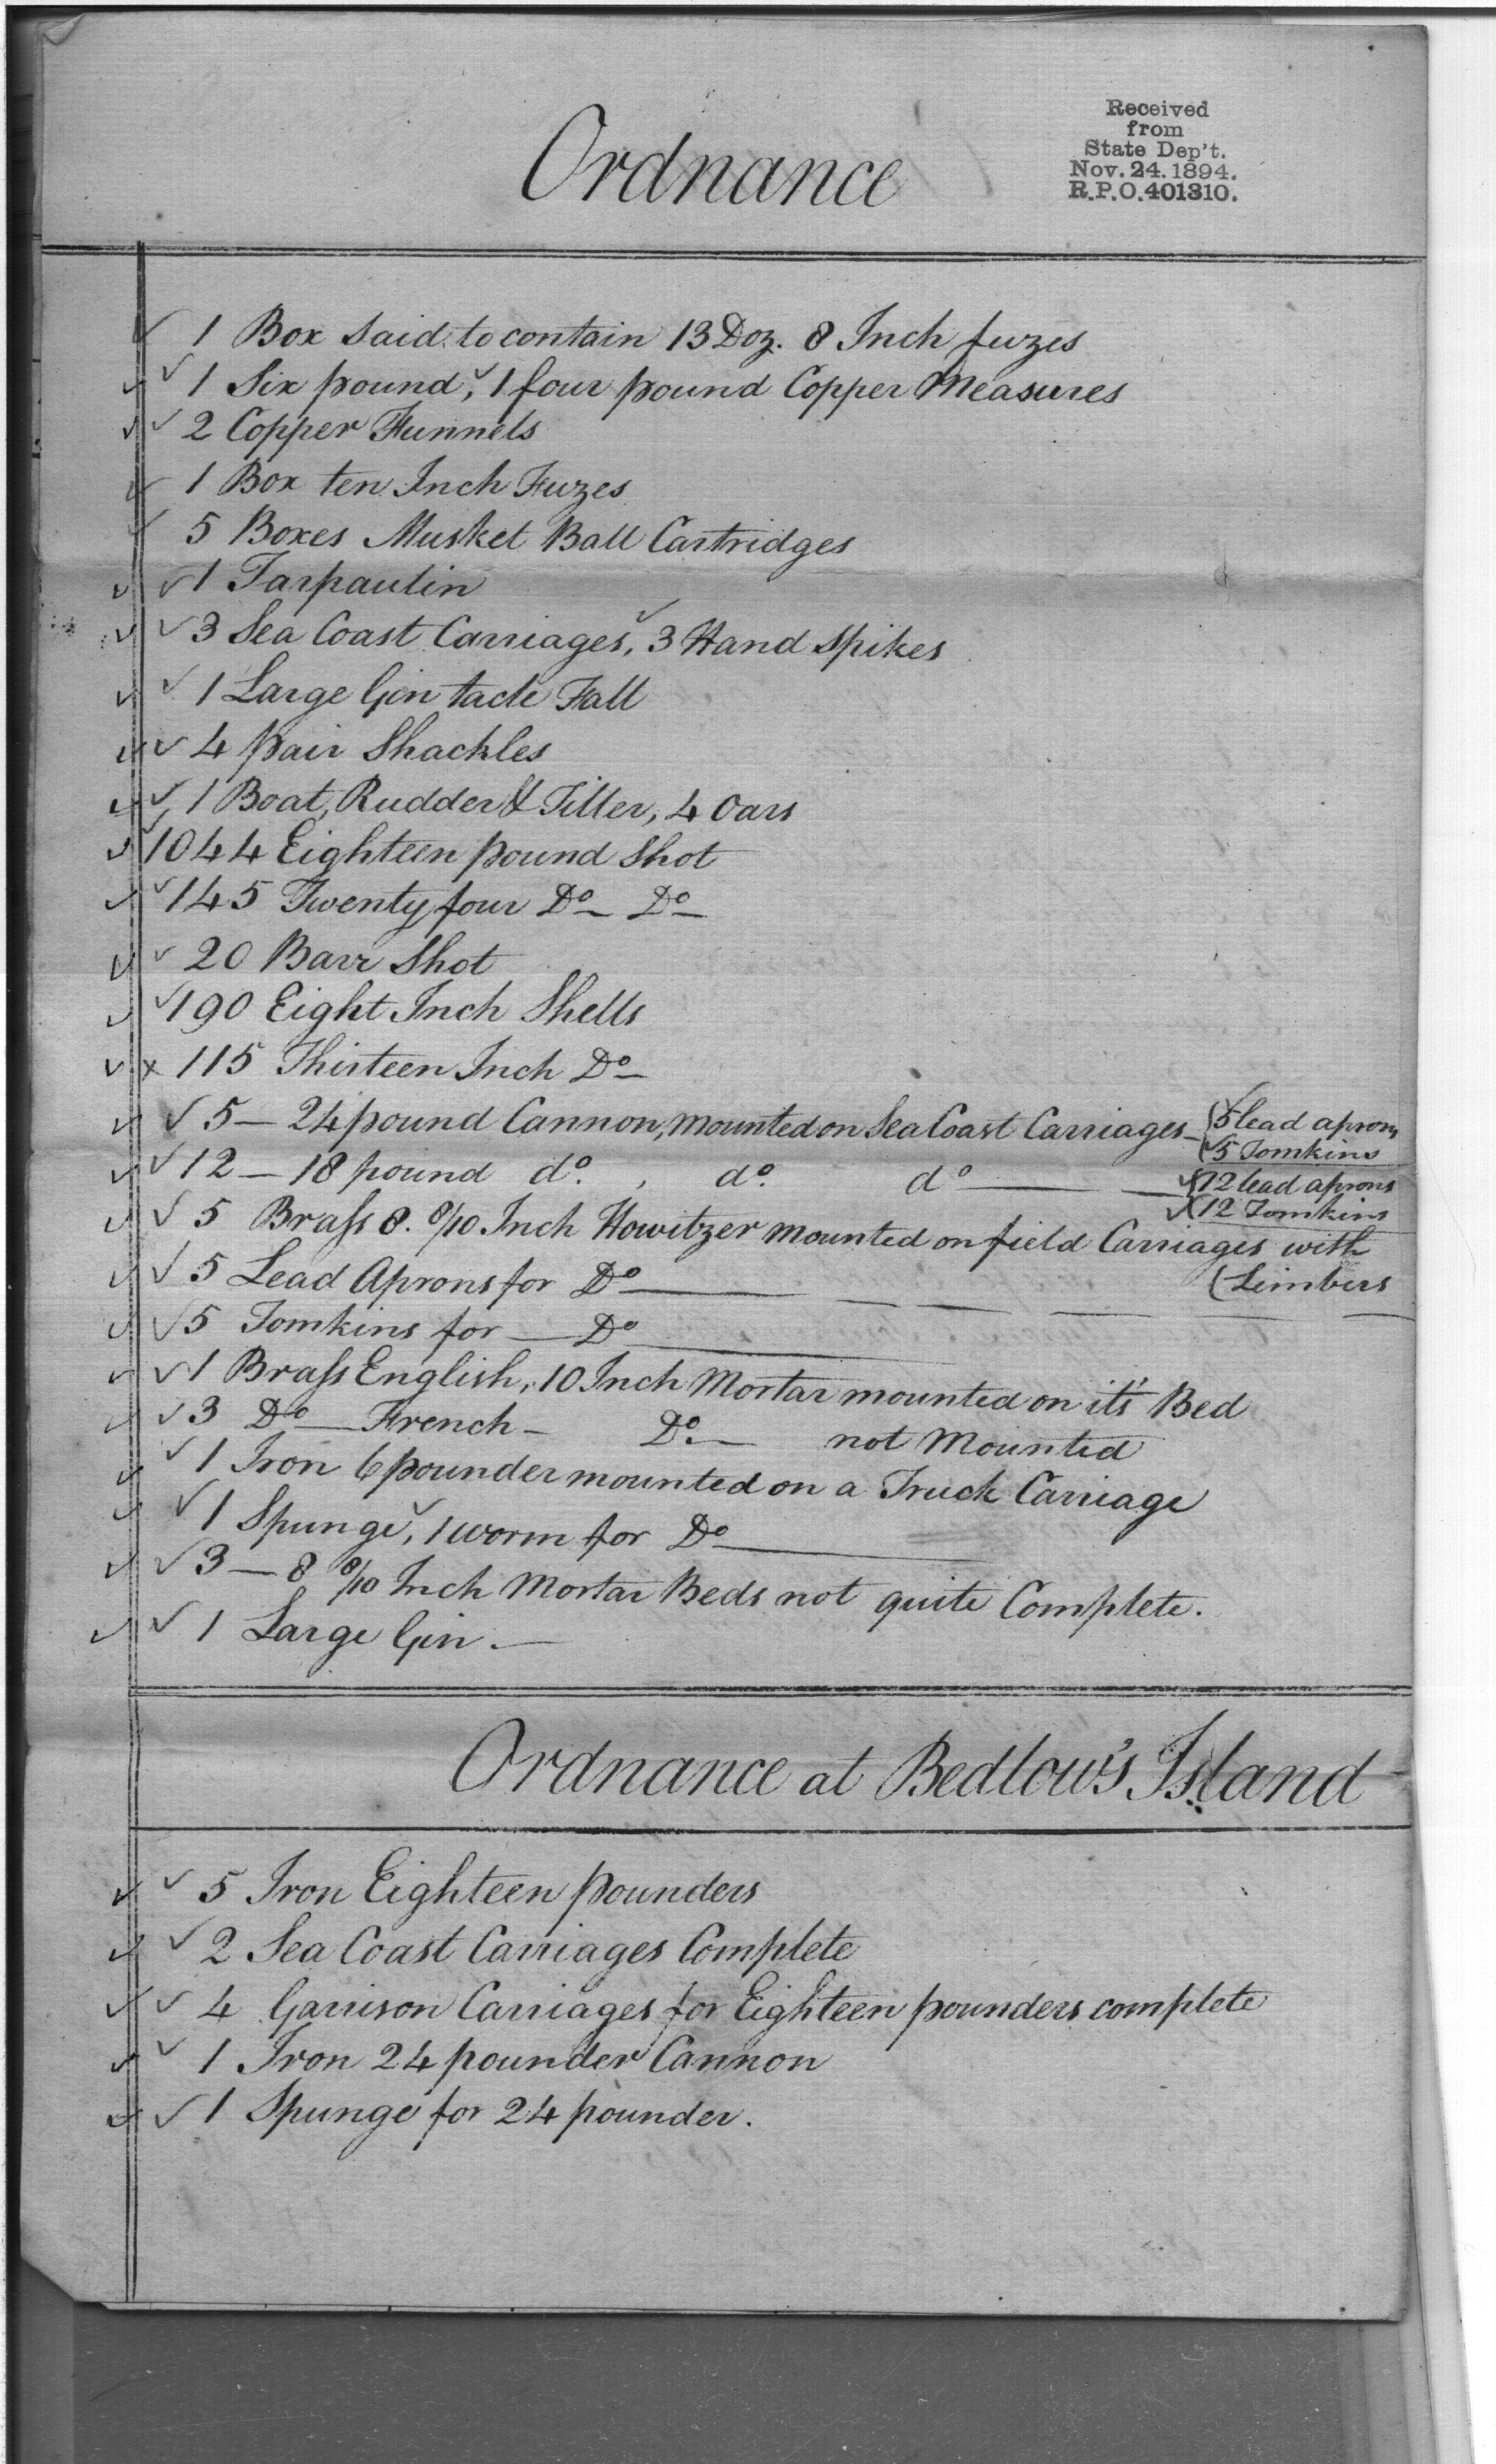 Ordnance
Received
from
State Dep't.
Nov. 24. 1894.
R.P.O. 401310.
✓ 1 Box Said to contain 13 Doz. 8 Inch fuzes
✓ ✓ 1 Six pound, ✓ 1 four pound Copper Measures
✓ ✓ 2 Copper Funnels
✓ 1 Box ten Inch Fuzes
✓ 5 Boxes Musket Ball Cartridges
✓ ✓ 1 Tarpaulin
✓ ✓ 3 Sea Coast Carriages, ✓ 3 Hand Spikes
✓ ✓ 1 Large Gin tacle Fall
✓ ✓ 4 pair Shackles
✓ ✓ 1 Boat, Rudder & Tiller, 4 Oars
✓ ✓ 1044 Eighteen pound Shot
✓ ✓ 145 Twenty four Do Do
✓ ✓ 20 Barr Shot
✓ ✓ 190 Eight Inch Shells
✓ x 115 Thirteen Inch Do
✓ ✓ 5 — 24 pound Cannon, mounted on Sea Coast Carriages — ( ✓ 5 lead aprons
( ✓ 5 Tomkins
✓ ✓ 12 — 18 pound do. , do. do — ✓ ( 12 lead aprons
✓ ( 12 Tomkins
✓ ✓ 5 Brass 8. 8/10 Inch Howitzer mounted on field Carriages with
( Limbers
✓ ✓ 5 Lead Aprons for Do
✓ ✓ 5 Tomkins for — Do
✓ ✓ 1 Brass English, 10 Inch Mortar mounted on it's Bed
✓ ✓ 3 Do — French — Do. — not Mounted
✓ ✓ 1 Iron 6 pounder mounted on a Truck Carriage
✓ ✓ 1 Spunge, ✓ 1 worm for Do
✓ ✓ 3 — 8 8/10 Inch Mortar Beds not quite Complete.
✓ ✓ 1 Large Gin. —
Ordnance at Bedlow's Island
✓ ✓ 5 Iron Eighteen pounders
✓ ✓ 2 Sea Coast Carriages Complete
✓ ✓ 4 Garrison Carriages for Eighteen pounders complete
✓ ✓ 1 Iron 24 pounder Cannon
✓ ✓ 1 Spunge for 24 pounder.